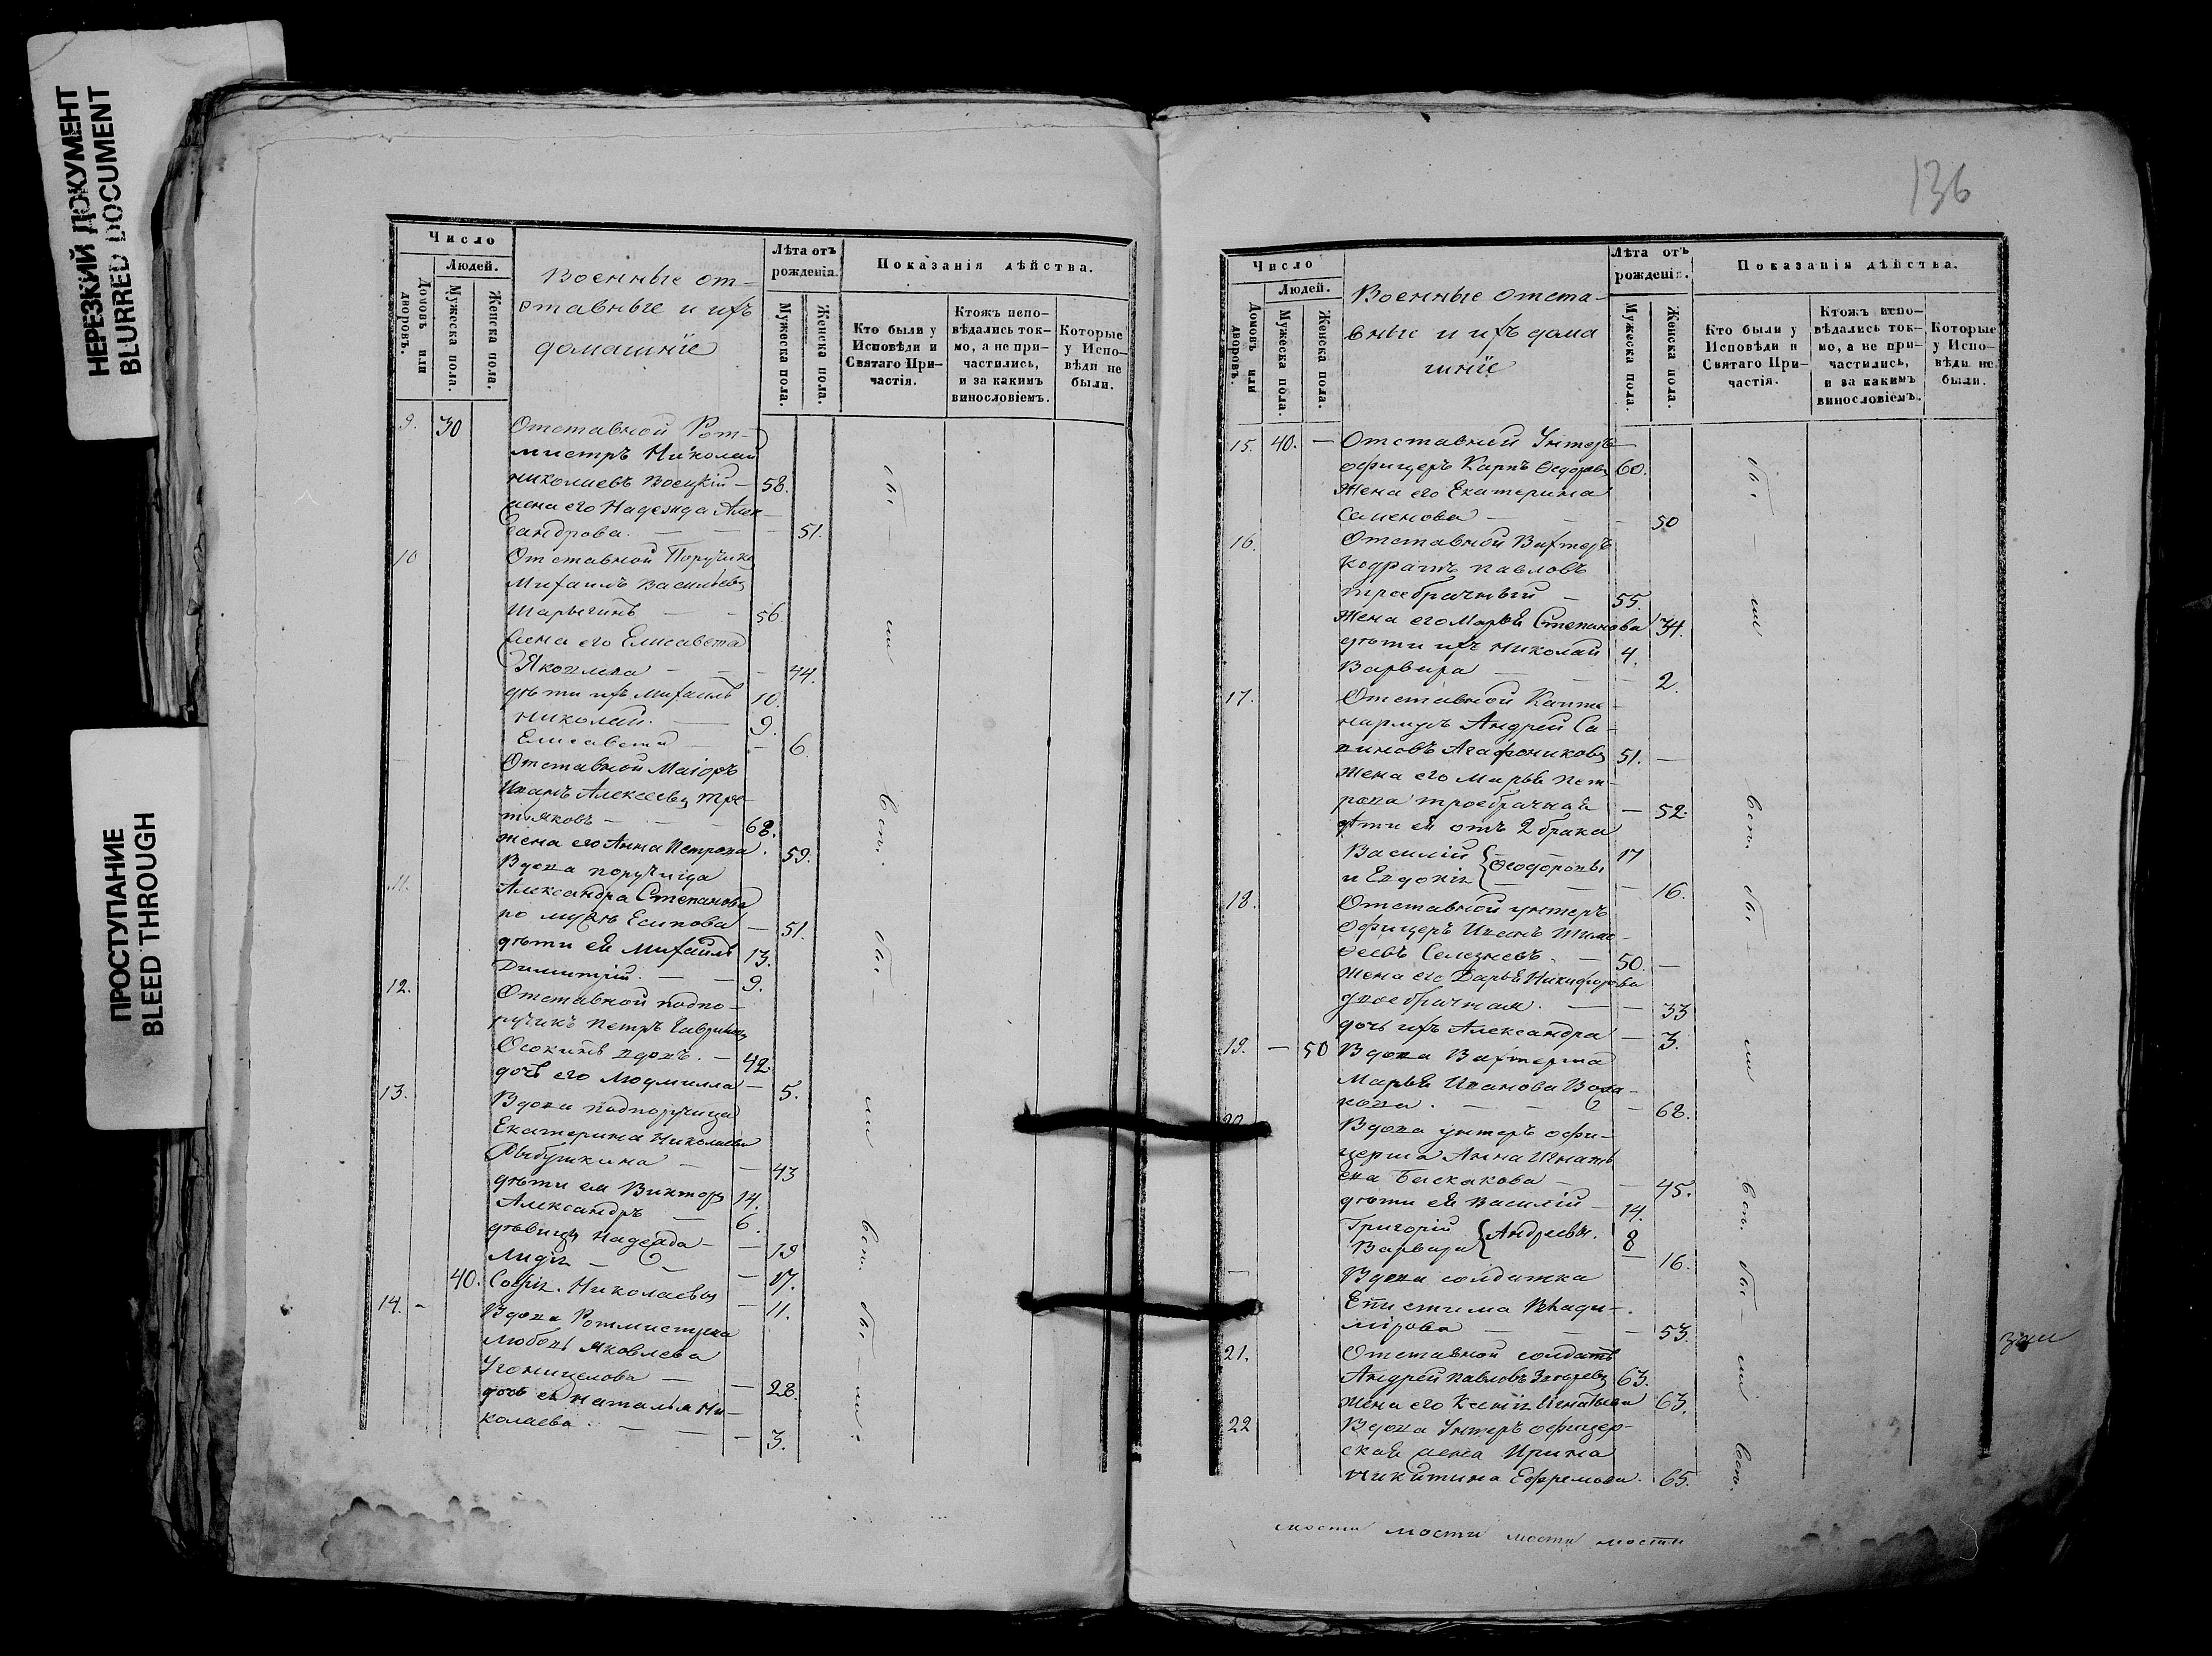 НЕРЕЗКИЙ ДОКУМЕНТ
BLURRED DOCUMENT
ПРОСТУПАНИЕ
BLEED THROUGH
Число
Людей.
Домовъ или дворовъ.
Мужеска пола.
Женска пола.
Военные от-
ставные и ихъ
домашніе
Лѣта отъ
рожденія.
Мужеска пола.
Женска пола.
Показанія дѣйства.
Кто были у
Исповѣди и
Святаго При-
частія.
Ктожъ испо-
вѣдались ток-
мо, а не при-
частились,
и за какимъ
винословіемъ.
Которые
у Испо-
вѣди не
были.
9. 30 Отставной Рот-
мистръ Николай
Николаевъ — 58.
жена его Надежда Алек-
сандрова. — 51.
10 Отставной Поручикъ
Михаилъ Васильевъ
Шарыгинъ — 56.
жена его Елисавета
Яковлева — 44.
дѣти ихъ Михаилъ 10.
Николай. — 9.
Елисавета — 6.
Отставной Маіоръ
Иванъ Алексеевъ Тре-
тьяковъ — 68.
жена его Анна Петрова. 59.
11. Вдова поручица
Александра Степанова
по мужѣ Есипова — 51.
дѣти ея Михаилъ 13.
Димитрій. — 9.
12. Отставной подпо-
ручикъ Петръ Гавриловъ
Осокинъ вдовъ. — 42.
дочь его Людмилла — 5.
13. Вдова подпоручица
Екатерина Николаева
Рыбушкина — 43
дѣти ея Викторъ 14.
Александръ — 6.
дѣвицы Надежда — 19
Лидія — 17.
40. Софія. Николаевы — 11.
14. - Вдова Ротмистрша
Любовь Яковлева
— 28.
дочь ея Наталья Ни-
колаева. — 3.
бы —
ли
всѣ.
бы —
ли
всѣ.
бы
ли.
136
Число
Людей.
Домовъ или дворовъ.
Мужеска пола.
Женска пола.
Военные отста-
вные и ихъ дома
шніе
Лѣта отъ
рожденія.
Мужеска пола.
Женска пола.
Показанія дѣйства.
Кто были у
Исповѣди и
Святаго При-
частія.
Ктожъ испо-
вѣдались ток-
мо, а не при-
частились,
и за какимъ
винословіемъ.
Которые
у Испо-
вѣди не
были.
15. 40. — Отставной Унтеръ-
офицеръ Карпъ Ѳедоровъ 60.
Жена его Екатерина
Семенова — 50
16. Отставной Вахтеръ
Кодратъ Павловъ
троебрачный — 55.
Жена его Марья Степанова 34.
дѣти ихъ Николай 4.
Варвара — 2.
17. Отставной Капте-
нармусъ Андрей Са-
виновъ Агафониковъ 51. —
Жена его Марья Пет-
рова троебрачная — 52.
дѣти ея отъ 2 брака
Василій { Ѳеодоровы 17
и Евдокія — 16.
18. Отставной унтеръ
офицеръ Иванъ Тимо-
ѳеевъ Селезневъ. — 50. —
Жена его Дарья Никифорова
двоебрачная. — 33
дочь ихъ Александра — 3.
19. — 50 Вдова Вахтерша
Марья Иванова Вола-
кова. — 68.
20. Вдова унтеръ офи-
церша Анна Игнать
ева Баскакова — 45.
дѣти ея Василій — 14.
Григорій { Андреевы. 8
Варвара — 16.
— Вдова солдатка
Епистима Влади-
мірова — 53.
21. Отставной солдатъ
Андрей Павловъ 63.
жена его Ксенія Игнатьева 63.
22 Вдова Унтеръ офицер-
ская жена Ирина
Никитина Ефремова. 65.
бы —
ли
всѣ.
бы —
ли
всѣ.
бы —
ли
всѣ.
мости мости мости мости